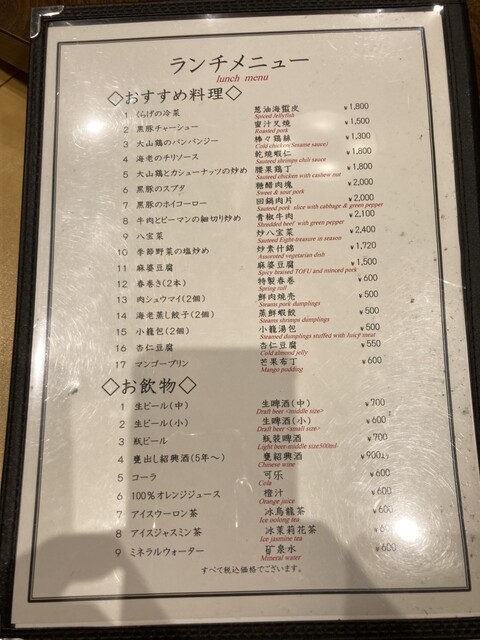 ランチメニュー
lunch menu
◇おすすめ料理◇
1 くらげの冷菜 葱油海蜇皮 ¥1,800
Spiced Jellyfish
2 黒豚チャーシュー 蜜汁叉燒 ¥1,500
Roasted pork
3 大山鶏のバンバンジー 棒々鶏絲 ¥1,300
Cold chicken(Sesame sauce)
4 海老のチリソース 乾焼蝦仁 ¥1,800
Sauteed shrimps chili sauce
5 大山鶏とカシューナッツの炒め 腰果鶏丁 ¥1,800
Sauteed chicken with cashew nut
6 黒豚のスブタ 糖醋肉塊 ¥2,000
Sweet & sour pork
7 黒豚のホイコーロー 回鍋肉片 ¥2,000
Sauteed pork slice with cabbage & green pepper
8 牛肉とピーマンの細切り炒め 青椒牛肉 ¥2,100
Shredded beef with green pepper
9 八宝菜 炒八宝菜 ¥2,400
Sauteed Eight-treasure in season
10 季節野菜の塩炒め 炒素什錦 ¥1,720
Assorented vegetarian dish
11 麻婆豆腐 麻婆豆腐 ¥1,500
Spicy braised TOFU and minced pork
12 春巻き(2本) 特製春巻 ¥600
Spring roll
13 肉シュウマイ(2個) 鮮肉焼売 ¥500
Steams pork dumplings
14 海老蒸し餃子(2個) 蒸鮮蝦餃 ¥500
Steams shrimps dumplings
15 小籠包(2個) 小籠湯包 ¥500
Steamed dumplings stuffed with Juicy meat
16 杏仁豆腐 杏仁豆腐 ¥550
Cold almond jelly
17 マンゴープリン 芒果布丁 ¥600
Mango pudding
◇お飲物◇
1 生ビール(中) 生啤酒(中) ¥700
Draft beer <middle size>
2 生ビール(小) 生啤酒(小) ¥600
Draft beer <small size>
3 瓶ビール 瓶装啤酒 ¥700
Light beer-middle size500ml
4 甕出し紹興酒(5年〜) 甕紹興酒 ¥900
Chinese wine
5 コーラ 可乐 ¥600
Cola
6 100%オレンジジュース 橙汁 ¥600
Orange juice
7 アイスウーロン茶 冰烏龍茶 ¥600
Ice oolong tea
8 アイスジャスミン茶 冰茉莉花茶 ¥600
Ice jasmine tea
9 ミネラルウォーター 矿泉水 ¥600
Mineral water
すべて税込価格でございます。